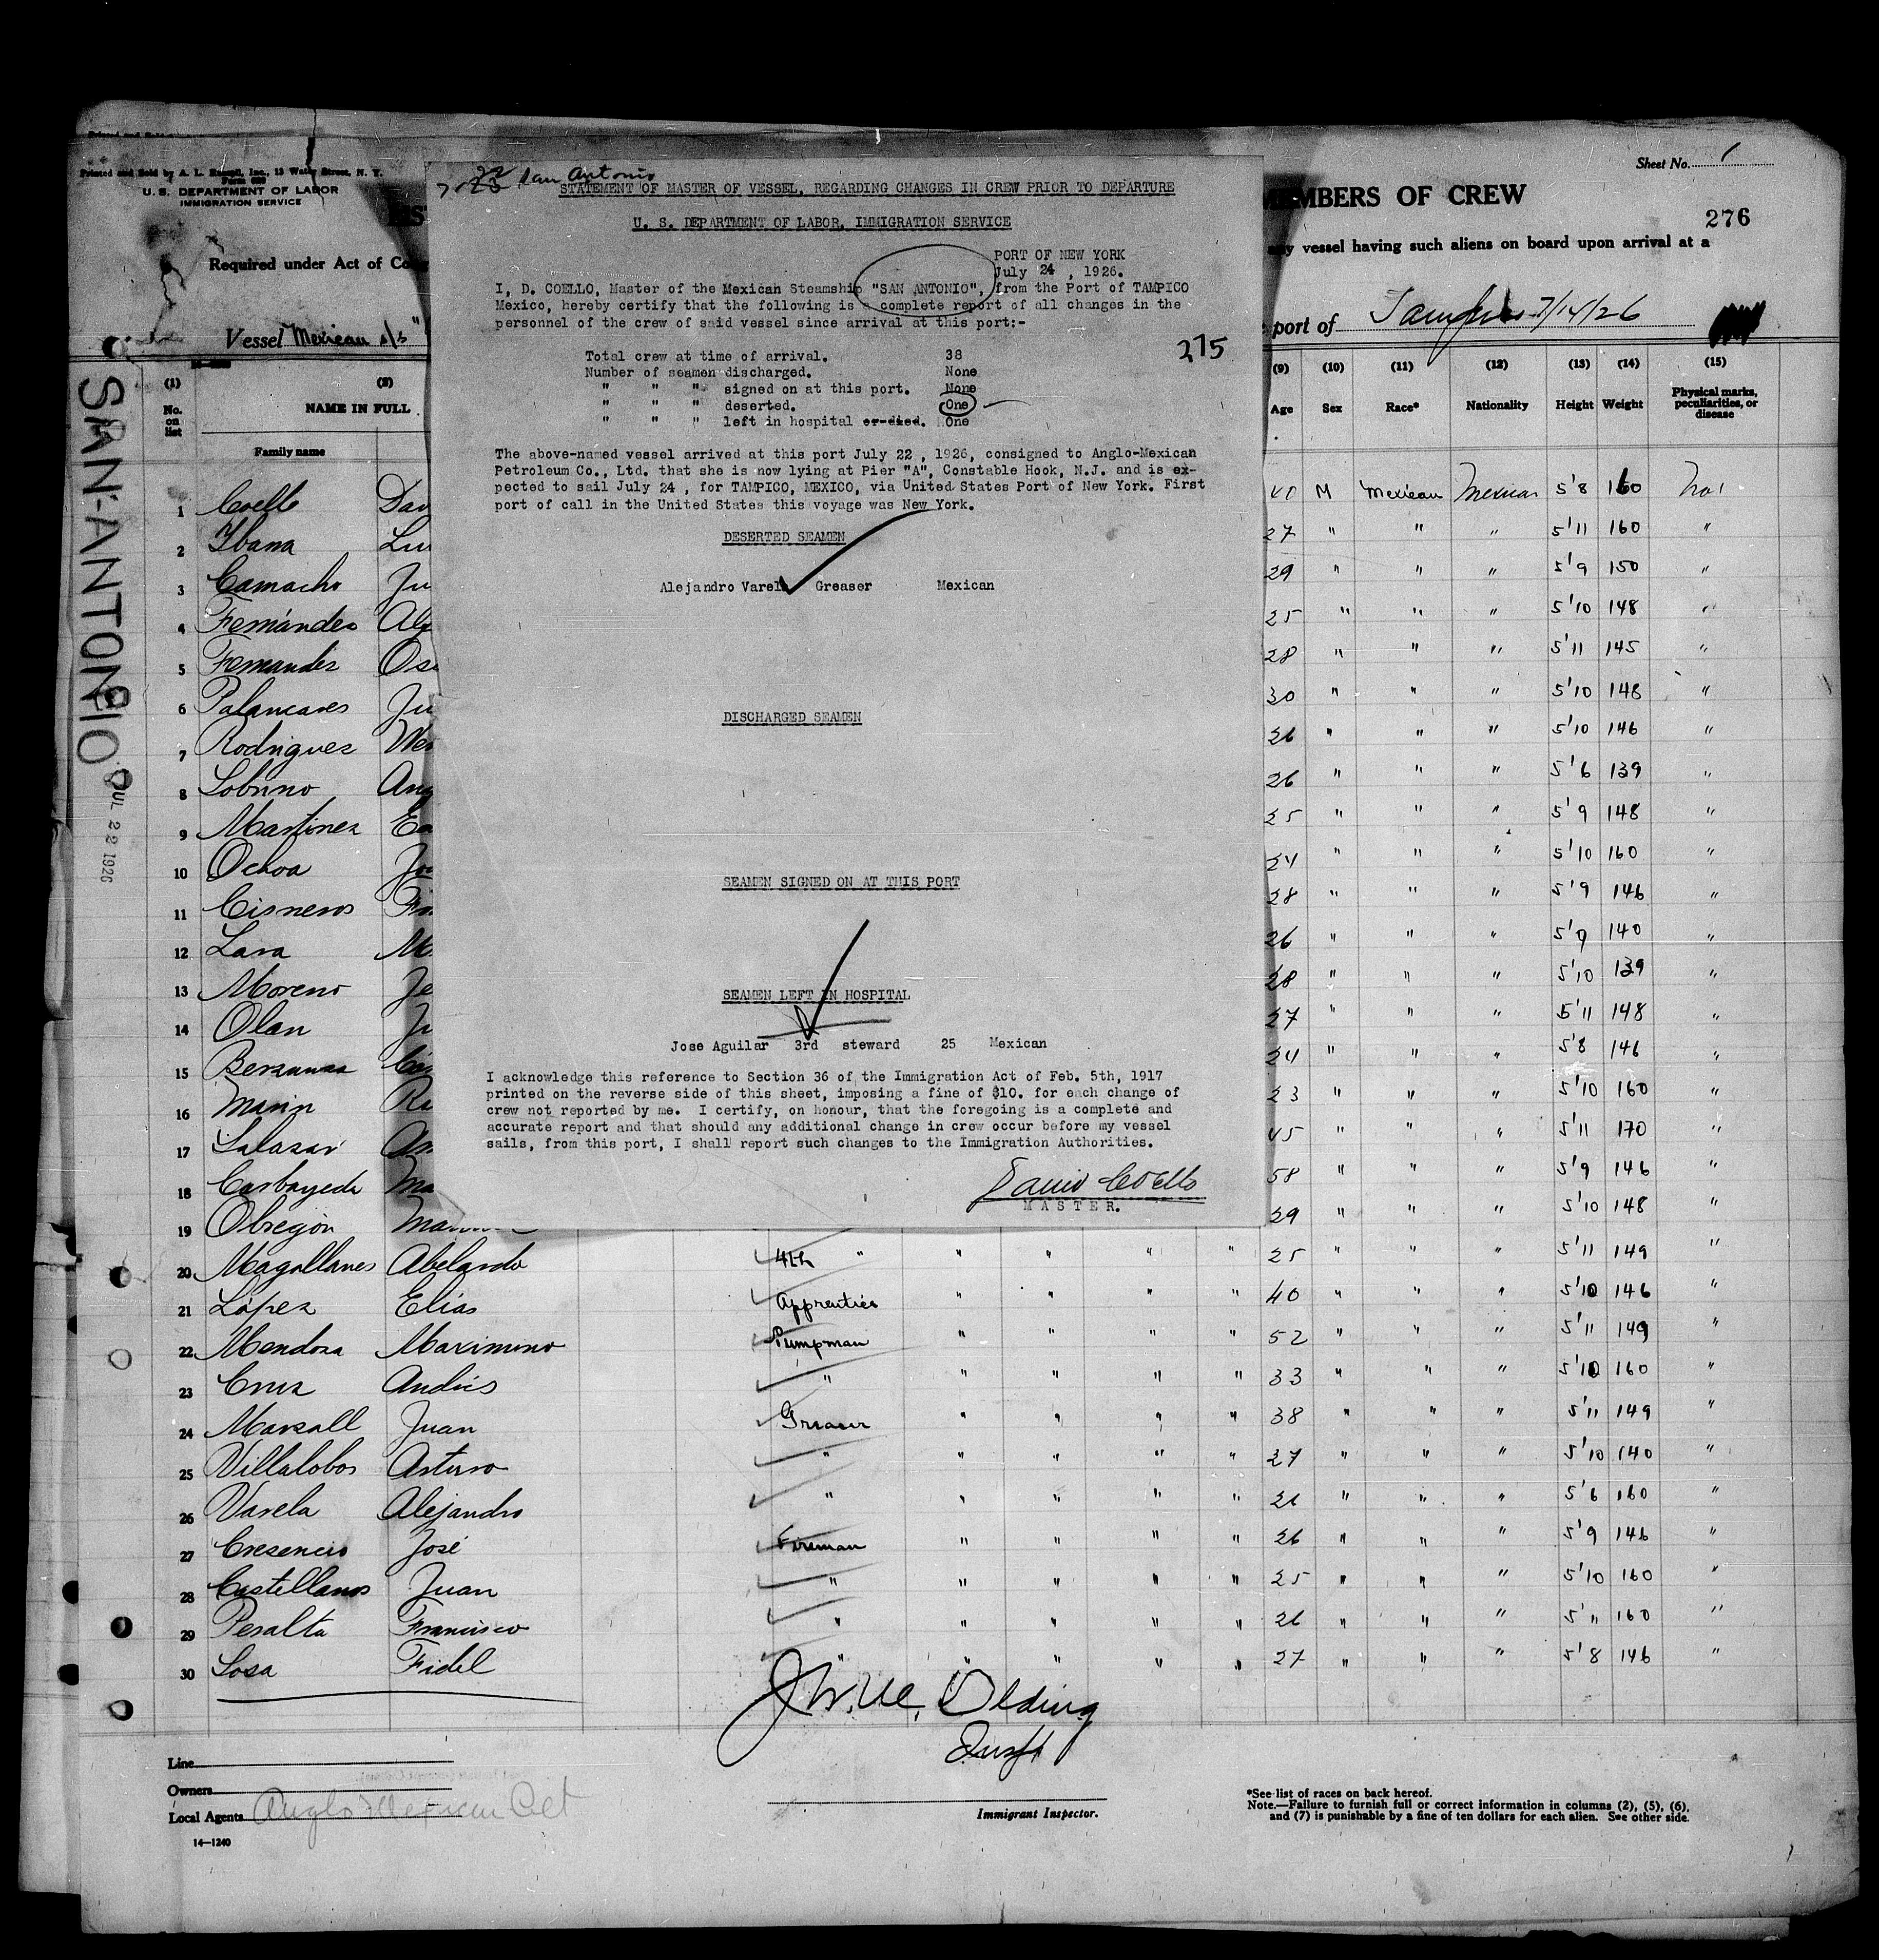 Sheet No. 1
Printed and Sold by A. L. Inc., 13 Water Street, N. Y.
U. S. DEPARTMENT OF LABOR
IMMIGRATION SERVICE
MEMBERS OF CREW
276
Required under Act of
any vessel having such aliens on board upon arrival at a
Vessel Mexican s/s "
port of Tampico 7/14/26
SAN-ANTONIO
JUL 22 1926
22
San Antonio
STATEMENT OF MASTER OF VESSEL, REGARDING CHANGES IN CREW PRIOR TO DEPARTURE
U. S. DEPARTMENT OF LABOR, IMMIGRATION SERVICE
PORT OF NEW YORK
July 24 , 1926.
I, D. COELLO, Master of the Mexican Steamship "SAN ANTONIO", from the Port of TAMPICO
Mexico, hereby certify that the following is a complete report of all changes in the
personnel of the crew of said vessel since arrival at this port:-
275
Total crew at time of arrival. 38
Number of seamen discharged. None
" " " signed on at this port. None
" " " deserted. One
" " " left in hospital or died. One
The above-named vessel arrived at this port July 22 , 1926, consigned to Anglo-Mexican
Petroleum Co., Ltd. that she is now lying at Pier "A", Constable Hook, N.J. and is ex-
pected to sail July 24 , for TAMPICO, MEXICO, via United States Port of New York. First
port of call in the United States this voyage was New York.
DESERTED SEAMEN
Alejandro Varela Greaser Mexican
DISCHARGED SEAMEN
SEAMEN SIGNED ON AT THIS PORT
SEAMEN LEFT IN HOSPITAL
Jose Aguilar 3rd steward 25 Mexican
I acknowledge this reference to Section 36 of the Immigration Act of Feb. 5th, 1917
printed on the reverse side of this sheet, imposing a fine of $10. for each change of
crew not reported by me. I certify, on honour, that the foregoing is a complete and
accurate report and that should any additional change in crew occur before my vessel
sails, from this port, I shall report such changes to the Immigration Authorities.
David Coello
MASTER.
(1) (2) (9) (10) (11) (12) (13) (14) (15)
No. on list NAME IN FULL Age Sex Race* Nationality Height Weight Physical marks, peculiarities, or disease
Family name
1 Coello 40 M Mexican Mexican 5'8 160
2 Ibana 27 " " " 5'11 160 "
3 Camacho 29 " " " 5'9 150 "
4 Fernández 25 " " " 5'10 148 "
5 Fernandez 28 " " " 5'11 145 "
6 Palancares 30 " " " 5'10 148 "
7 Rodriguez 26 " " " 5'10 146 "
8 Sobrino 26 " " " 5'6 139 "
9 Martinez 25 " " " 5'9 148 "
10 Ochoa 24 " " " 5'10 160 "
11 Cisneros 28 " " " 5'9 146 "
12 Lara 26 " " " 5'9 140 "
13 Moreno 28 " " " 5'10 139 "
14 Olan 27 " " " 5'11 148 "
15 24 " " " 5'8 146 "
16 Marin 23 " " " 5'10 160 "
17 Salazar 45 " " " 5'11 170 "
18 58 " " " 5'9 146 "
19 Obregón 29 " " " 5'10 148 "
20 Magallanes Abelardo 4th " " " " " 25 " " " 5'11 149 "
21 López Elias Apprentice " " " " 40 " " " 5'10 146 "
22 Mendoza Maximino Pumpman " " " " 52 " " " 5'11 149 "
23 Cruz Andrés " " " " " 33 " " " 5'10 160 "
24 Marsall Juan Greaser " " " " 38 " " " 5'11 149 "
25 Villalobos Arturo " " " " " 27 " " " 5'10 140 "
26 Varela Alejandro " " " " " 21 " " " 5'6 160 "
27 Cresencio José Fireman " " " " 26 " " " 5'9 146 "
28 Castellanos Juan " " " " " 25 " " " 5'10 160 "
29 Peralta Francisco " " " " " 26 " " " 5'11 160 "
30 Sosa Fidel " " " " " 27 " " " 5'8 146 "
Olding
Line
Owners
Local Agents Anglo Mexican Pet
14—1240
Immigrant Inspector.
*See list of races on back hereof.
Note.—Failure to furnish full or correct information in columns (2), (5), (6),
and (7) is punishable by a fine of ten dollars for each alien. See other side.